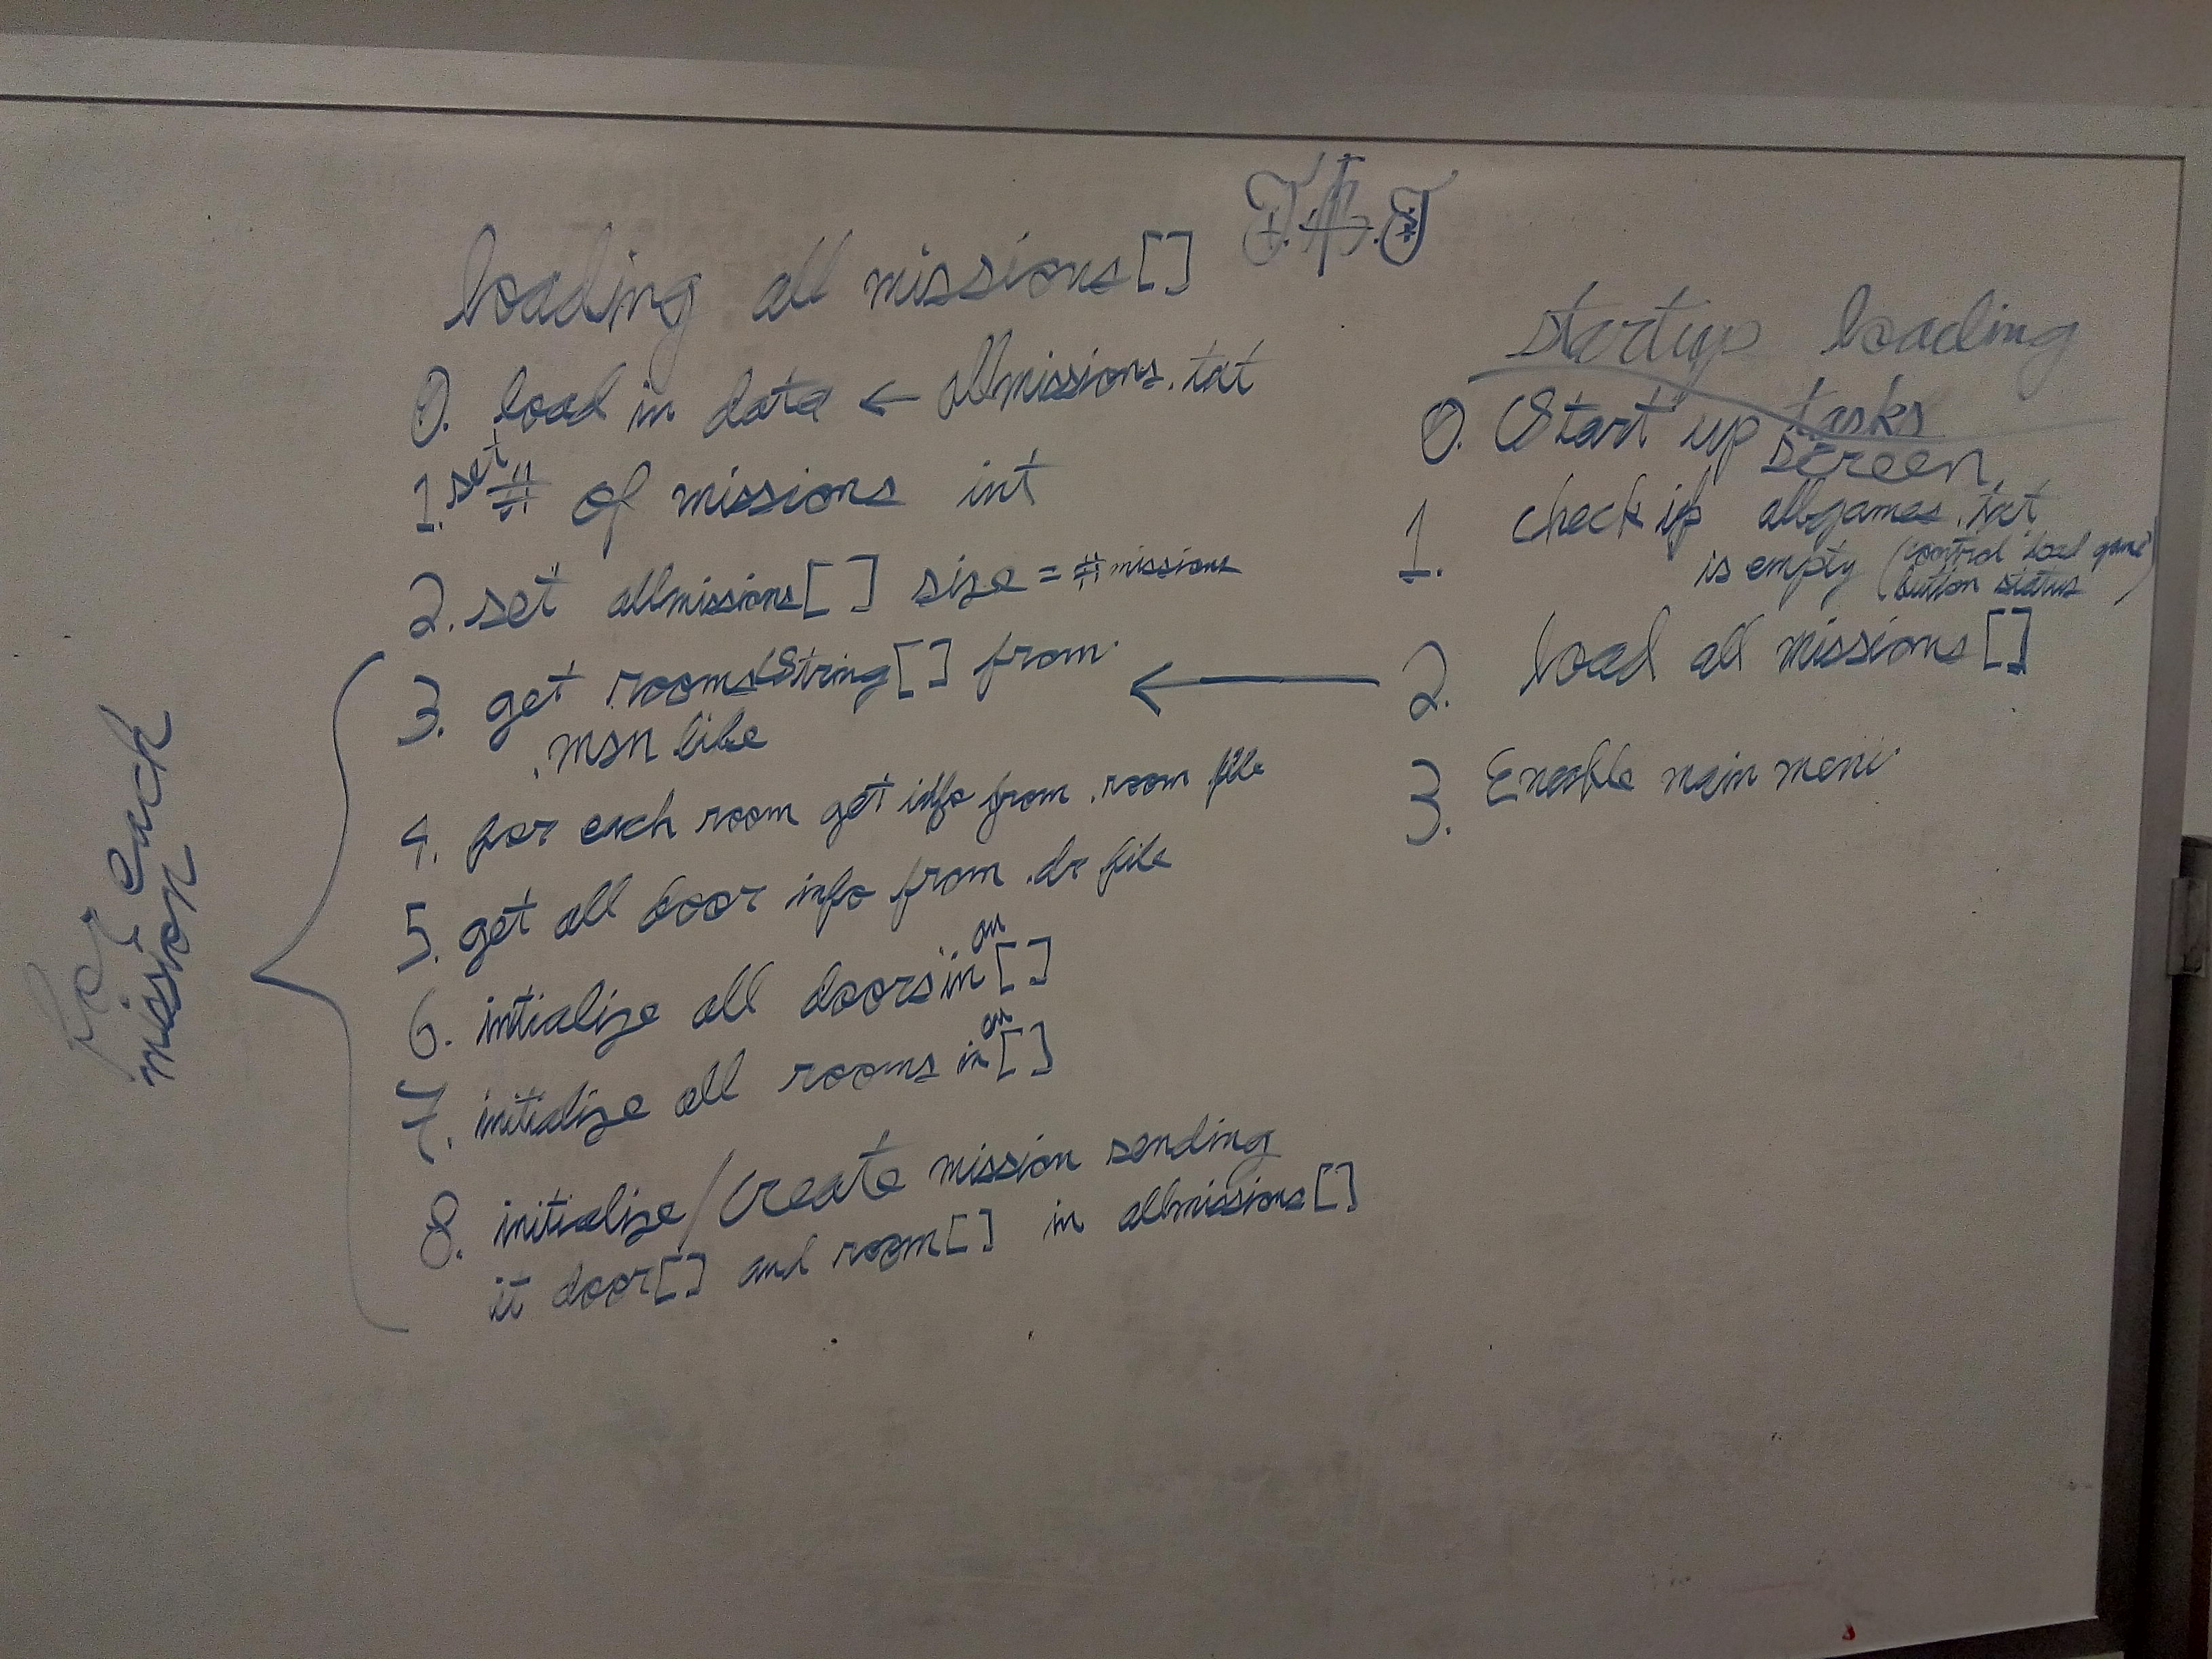 T.A.T
loading all missions[]
0. load in data ← allmissions.txt
1. set # of missions int
2. set allmissions[] size = #missions
3. get rooms String[] from
.msn file
4. for each room get info from .room file
5. get all door info from .dr file
6. intialize all doors in an []
7. initialize all rooms in an []
8. initialize/create mission sending
it door[] and room[] in allmissions[]
for each
mission
startup loading
tasks
0. Start up screen
1. check if allgames.txt
is empty (control load game
button status)
2. load all missions[]
3. Enable main menu